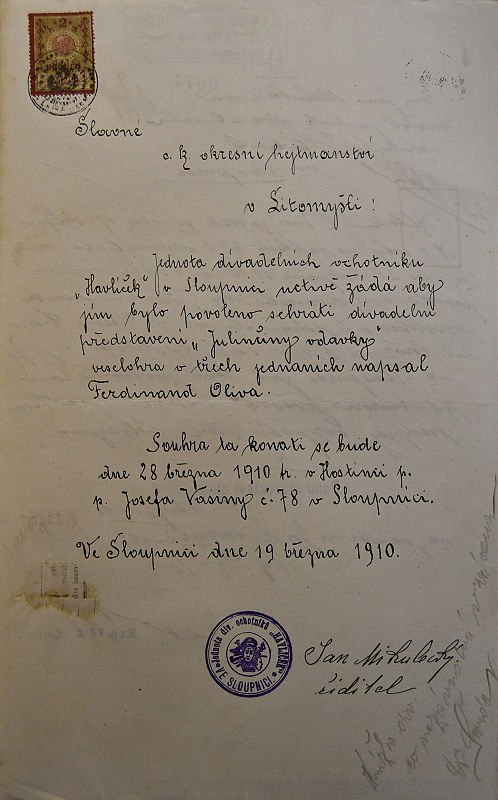 Slavné
c. k. okresní hejtmanství
v Litomyšli!
Jednota divadelních ochotníku
„Havlíček" v Sloupnici uctivě žádá aby
jim bylo povoleno sehráti divadelní
představení „Julinčiny vdavky"
veselohra v třech jednáních napsal
Ferdinand Oliva.
Souhra ta konati se bude
dne 28 března 1910 h. v Hostinci p.
p. Josefa Vašiny č. 78 v Sloupnici.
Ve Sloupnici dne 19 března 1910.
Jednota div. ochotníků „HAVLÍČEK"
VE SLOUPNICI.
Jan Mikulecký.
řiditel